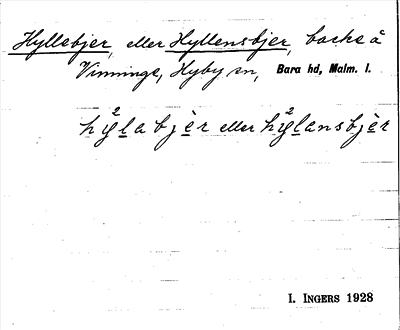 Hyllebjer, eller Hyllensbjer, backe å
Vinninge, Hyby sn, Bara hd, Malm. l.
hy²labjèr eller hy²lansbjèr
I. INGERS 1928